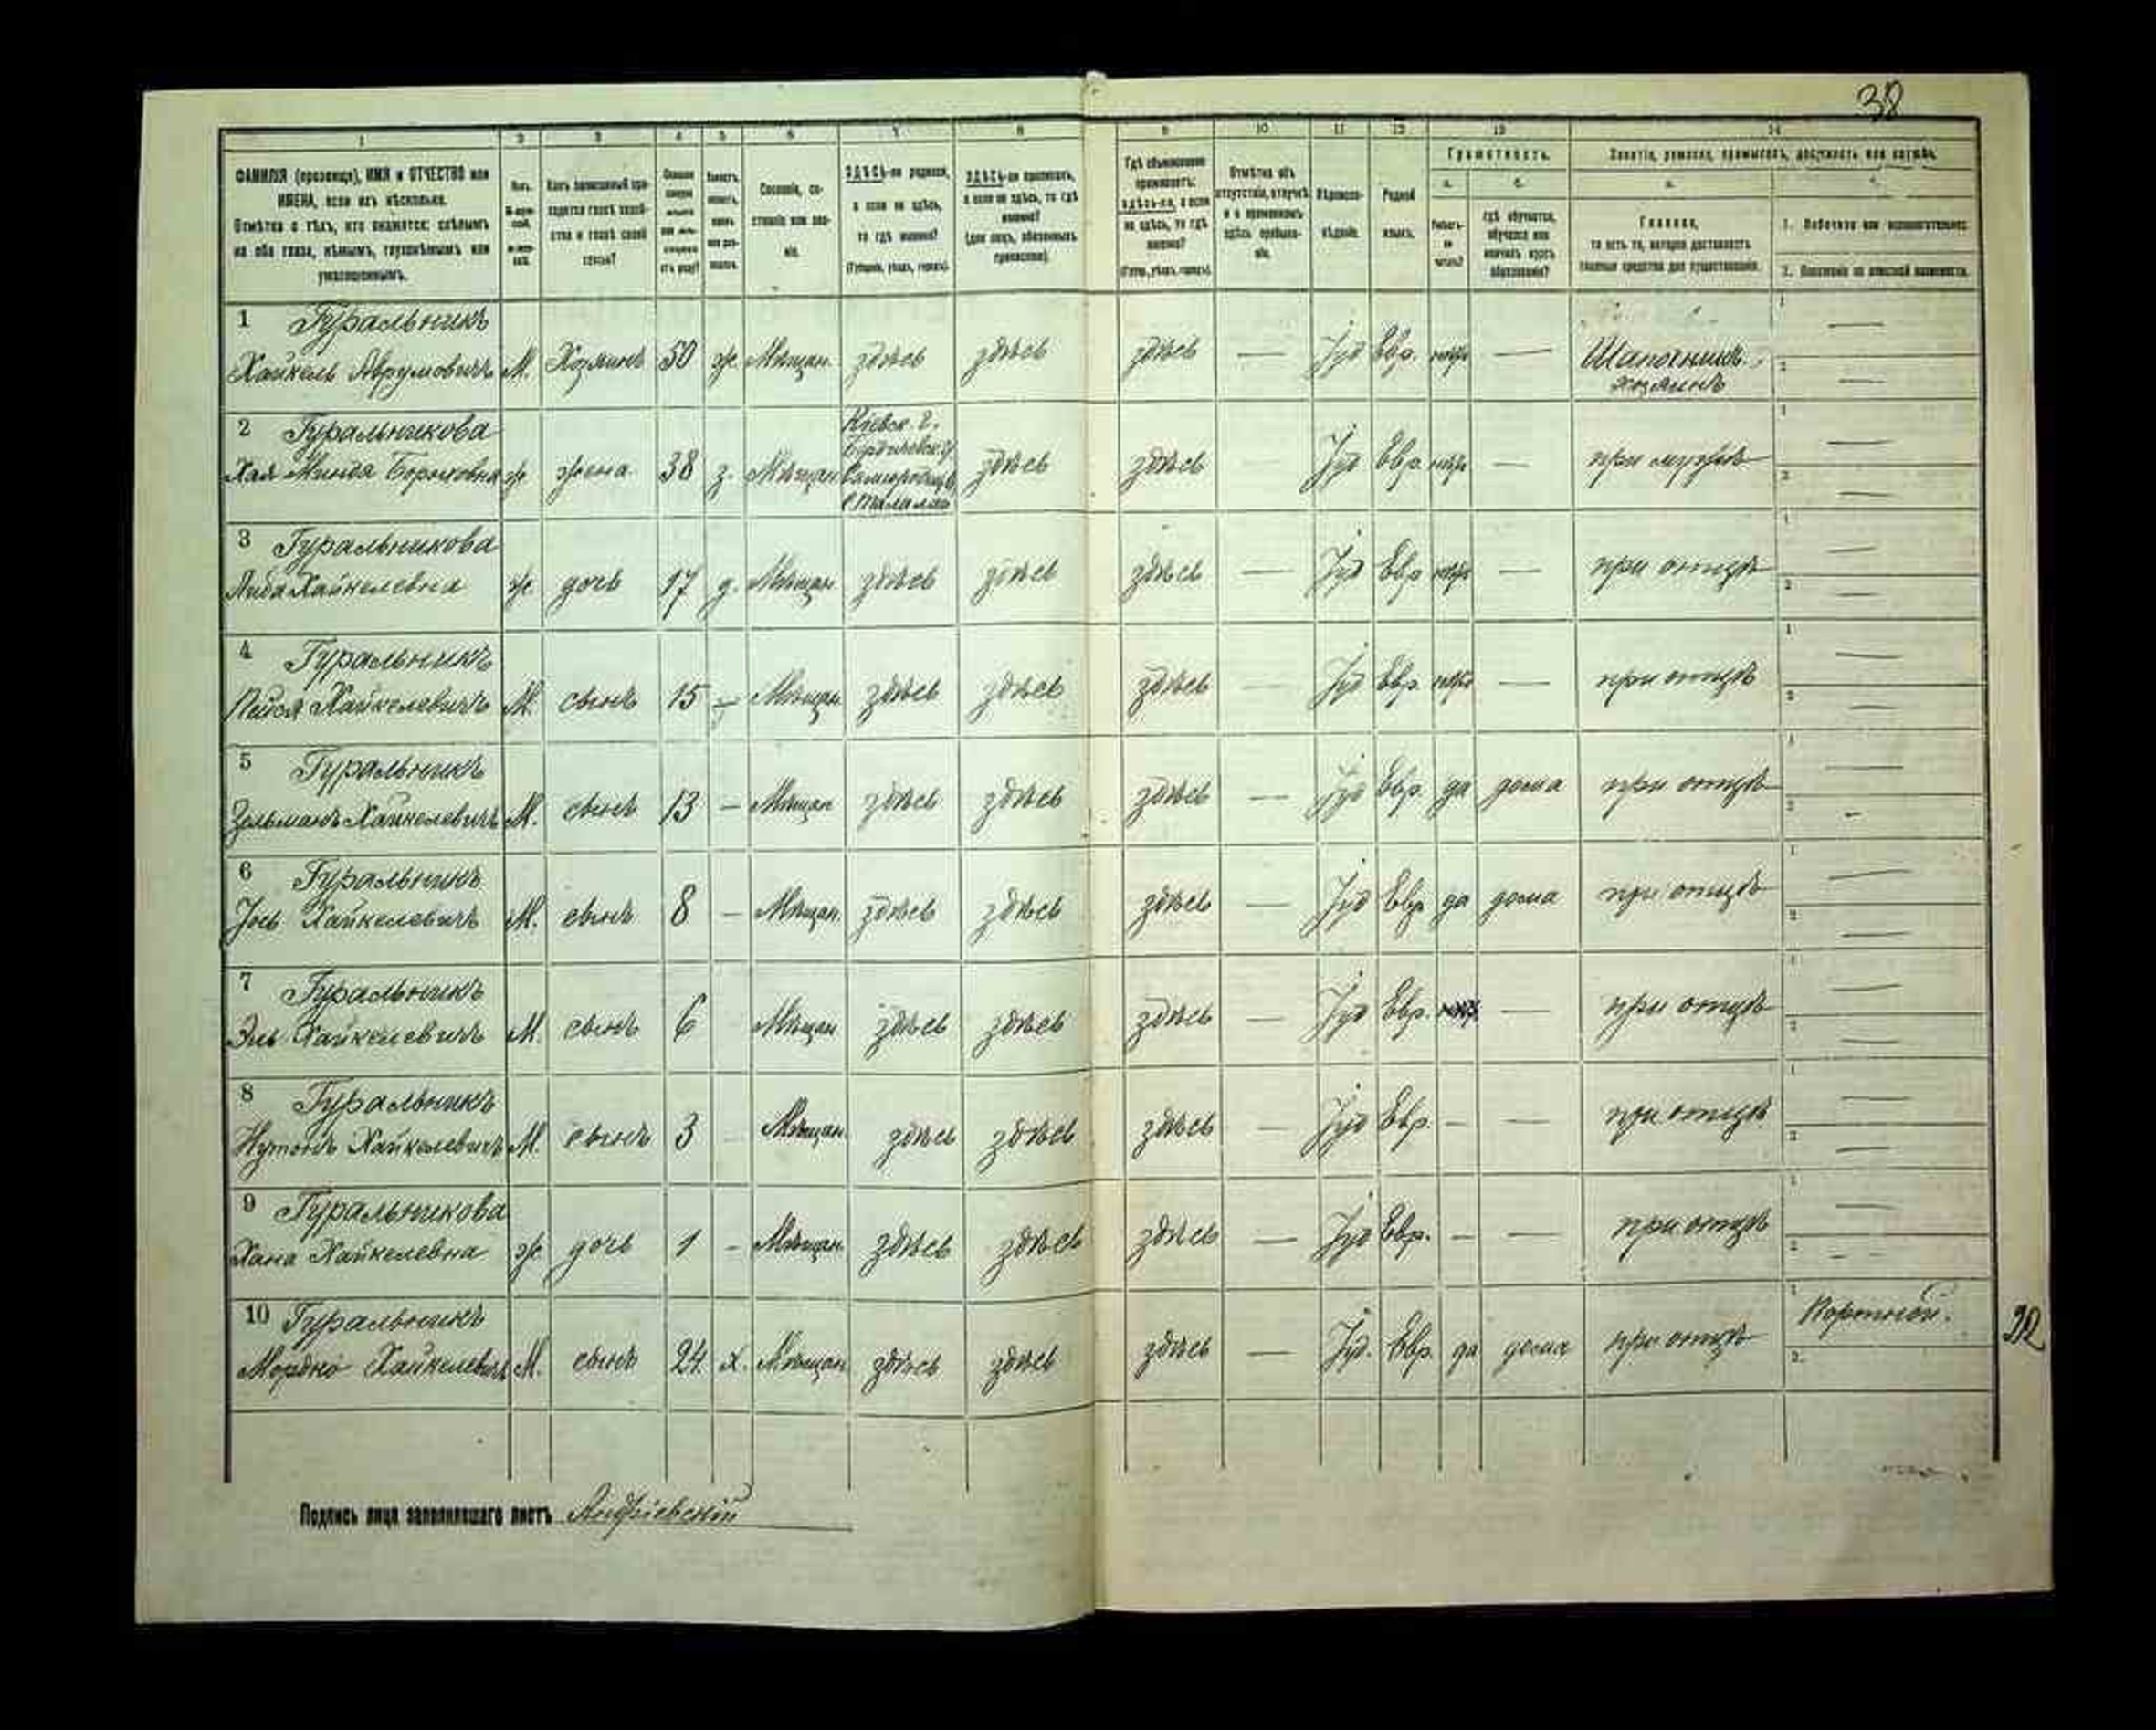 38
1 2 3 4 5 6 7 8 9 10 11 12 13 14
ФАМИЛІЯ (прозвище), ИМЯ и ОТЧЕСТВО или
ИМЕНА, если ихъ нѣсколько.
Отмѣтка о тѣхъ, кто окажется: слѣпымъ
на оба глаза, нѣмымъ, глухонѣмымъ или
умалишеннымъ.
Полъ.
Сословіе, со-
стояніе или зва-
ніе.
ЗДѢСЬ-ли родился,
а если не здѣсь,
то гдѣ именно?
(Губернія, уѣздъ, городъ).
ЗДѢСЬ-ли приписанъ,
а если не здѣсь, то гдѣ
именно?
(для лицъ, обязанныхъ
припискою).
Гдѣ обыкновенно
проживаетъ:
здѣсь-ли, а если
не здѣсь, то гдѣ
именно?
(Губер., уѣздъ, городъ).
Отмѣтка объ
отсутствіи, отлучкѣ
и о временномъ
здѣсь пребыва-
ніи.
Вѣроиспо-
вѣданіе.
Родной
языкъ.
Грамотность.
а. б.
Умѣетъ-
ли
читать?
гдѣ обучается,
обучался или
кончилъ курсъ
образованія?
Занятіе, ремесло, промыслъ, должность или служба.
а.
Главное,
то есть то, которое доставляетъ
главныя средства для существованія.
1. Побочное или вспомогательное.
2. Положеніе по воинской повинности.
1 Гуральникъ
Хайкель Аврумовичъ М. Хозяинъ 50 ж. Мѣщан. здѣсь здѣсь здѣсь — Іуд Евр. — Шапочникъ
хозяинъ — —
2 Гуральникова
Хая Минда Борковна ж жена 38 з. Мѣщан. Кіевск. г.
Бердичевск. у здѣсь здѣсь Іуд Евр. — при мужѣ — —
3 Гуральникова
Либа Хайкелевна ж. дочь 17 д. Мѣщан. здѣсь здѣсь здѣсь — Іуд Евр — при отцѣ — —
4 Гуральникъ
Пейся Хайкелевичъ М. сынъ 15 — Мѣщан. здѣсь здѣсь здѣсь — Іуд Евр. — при отцѣ — —
5 Гуральникъ
Зельманъ Хайкелевичъ М. сынъ 13 — Мѣщан здѣсь здѣсь здѣсь — Іуд Евр. да дома при отцѣ — —
6 Гуральникъ
Іось Хайкелевичъ М. сынъ 8 — Мѣщан. здѣсь здѣсь здѣсь — Іуд Евр да дома при отцѣ — —
7 Гуральникъ
Эль Хайкелевичъ М. сынъ 6 Мѣщан здѣсь здѣсь здѣсь — Іуд Евр. — при отцѣ — —
8 Гуральникъ
Нутонъ Хайкелевичъ М. сынъ 3 Мѣщан. здѣсь здѣсь здѣсь — Іуд Евр. — — при отцѣ — —
9 Гуральникова
Хана Хайкелевна ж дочь 1 — Мѣщан. здѣсь здѣсь здѣсь — Іуд Евр. — — при отцѣ — —
10 Гуральникъ
Мордко Хайкелевичъ М. сынъ 24. х. Мѣщан здѣсь здѣсь здѣсь — Іуд. Евр. да дома при отцѣ Портной.
Подпись лица заполнявшаго листъ Андріевскій